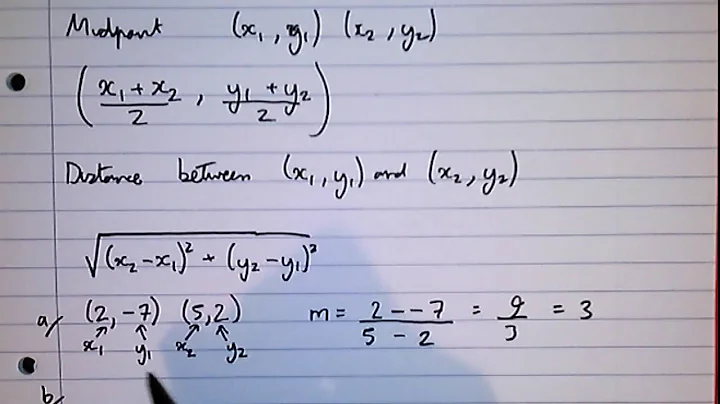 Midpoint (x₁, y₁) (x₂, y₂)
((x₁ + x₂)/2 , (y₁ + y₂)/2)
Distance between (x₁, y₁) and (x₂, y₂)
√((x₂ - x₁)² + (y₂ - y₁)²)
a/ (2, -7) (5, 2) m = (2 - -7)/(5 - 2) = 9/3 = 3
x₁ y₁ x₂ y₂
b/